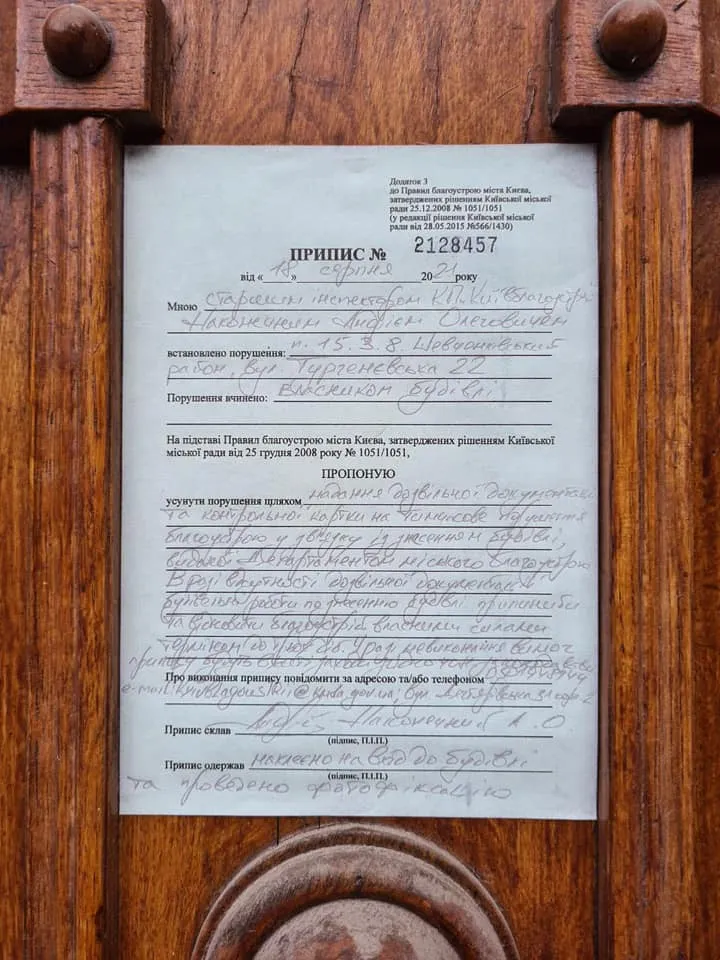 Додаток 3
до Правил благоустрою міста Києва,
затверджених рішенням Київської міської
ради 25.12.2008 № 1051/1051
(у редакції рішення Київської міської
ради від 28.05.2015 №566/1430)
ПРИПИС № 2128457
від « 18 » серпня 2021 року
Мною старшим інспектором КП "Київблагоустрій"
Наконечним Андрієм Олеговичем
встановлено порушення: п. 15.3.8. Шевченківський
район, вул. Тургенєвська 22
Порушення вчинено: власником будівлі
На підставі Правил благоустрою міста Києва, затверджених рішенням Київської
міської ради від 25 грудня 2008 року № 1051/1051,
ПРОПОНУЮ
усунути порушення шляхом надання дозвільної документації
та контрольної картки на тимчасове порушення
благоустрою у звязку із знесенням будівлі,
видані Департаментом міського благоустрою
В разі відсутності дозвільної документації
будівельні роботи по знесенню будівлі припинити
та відновити благоустрій власними силами
терміном до
У разі невиконання вимог
припису будуть вжиті заходи
Про виконання припису повідомити за адресою та/або телефоном
e-mail:
Припис склав Наконечний А.О
(підпис, П.І.П.)
Припис одержав наклеєно на вхід до будівлі
(підпис, П.І.П.)
та проведено фотофіксацію